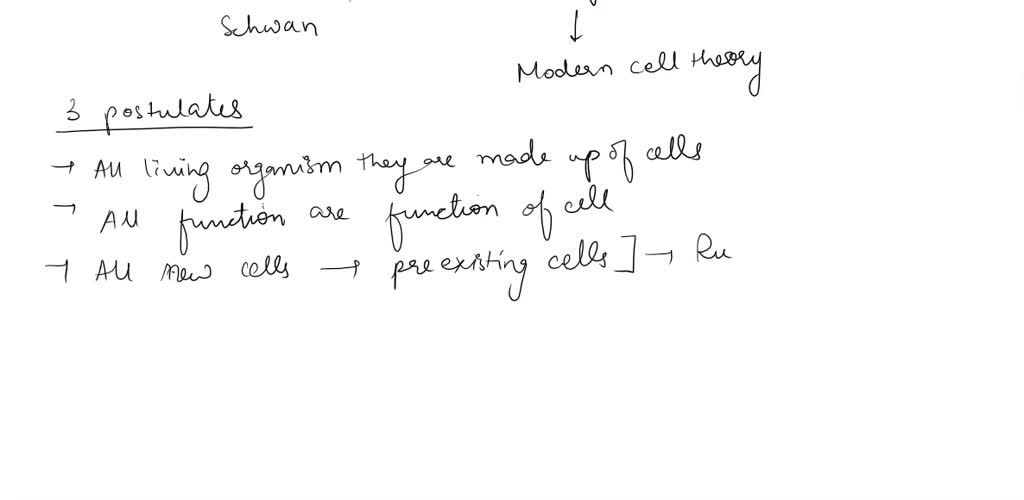 Schwan
↓
Modern cell theory
3 postulates
→ All living organism they are made up of cells
→ All function are function of cell
→ All new cells → preexisting cells] → Ru